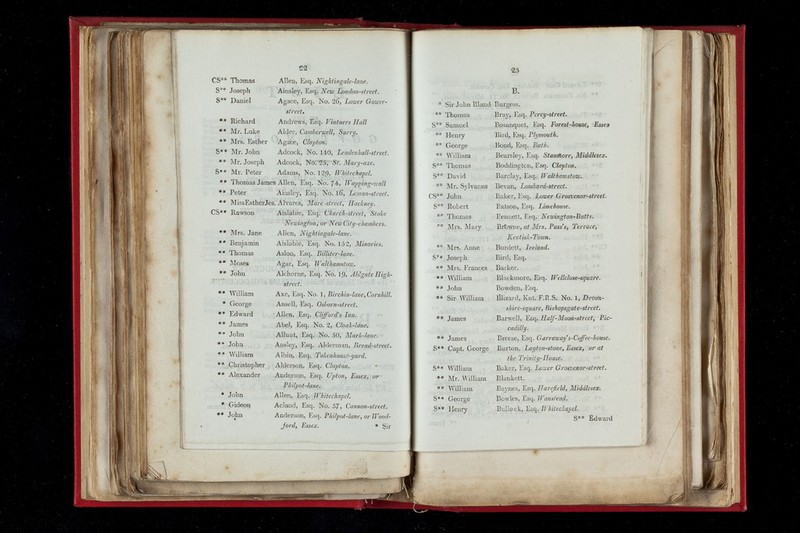 22
CS** Thomas Allen, Esq. Nightingale-lane.
S** Joseph Ainsley, Esq. New London-street.
S** Daniel Agace, Esq. No. 26, Lower Gower-
street.
** Richard Andrews, Esq. Vintners Hall
** Mr. Luke Alder, Camberwell, Surry.
** Mrs. Esther Agace, Clapton.
S** Mr. John Adcock, No. 140, Leadenhall-street.
** Mr. Joseph Adcock, No. 25, St. Mary-axe.
S** Mr. Peter Adams, No. 129, Whitechapel.
** Thomas James Allen, Esq. No. 74, Wapping-wall
** Peter Ainsley, Esq. No. 16, Leman-street.
** Miss Esther Jea. Alvares, Mare-street, Hackney.
CS** Rawson Aislabie, Esq. Church-street, Stoke
Newington, or New City-chambers.
** Mrs. Jane Allen, Nightingale-lane.
** Benjamin Aislabie, Esq. No. 152, Minories.
** Thomas Asloo, Esq. Billiter-lane.
** Moses Agar, Esq. Walthamstow.
** John Alchorne, Esq. No. 19, Aldgate High-
street.
** William Axe, Esq. No. 1, Birchin-lane, Cornhill.
* George Ansell, Esq. Osborn-street.
** Edward Allen, Esq. Clifford's Inn.
** James Abel, Esq. No. 2, Cloak-lane.
** John Allnut, Esq. No. 50, Mark-lane.
** John Ansley, Esq. Alderman, Bread-street.
** William Albin, Esq. Tokenhouse-yard.
** Christopher Alderson, Esq. Clapton.
** Alexander Anderson, Esq. Upton, Essex, or
Philpot-lane.
* John Allen, Esq. Whitechapel.
* Gideon Acland, Esq. No. 57, Cannon-street.
** John Anderson, Esq. Philpot-lane, or Wood-
ford, Essex.
* Sir
23
B.
* Sir John Bland Burgess.
** Thomas Bray, Esq. Percy-street.
S** Samuel Bosanquet, Esq. Forest-house, Essex
** Henry Bird, Esq. Plymouth.
** George Bond, Esq. Bath.
** William Beansley, Esq. Stanmore, Middlesex.
S** Thomas Boddington, Esq. Clapton.
S** David Barclay, Esq. Walthamstow.
** Mr. Sylvanus Bevan, Lombard-street.
CS** John Baker, Esq. Lower Grosvenor-street.
S** Robert Batson, Esq. Limehouse.
** Thomas Bennett, Esq. Newington-Butts.
** Mrs. Mary Browne, at Mrs. Pass's, Terrace,
Kentish-Town.
** Mrs. Anne Burdett, Ireland.
S** Joseph Bird, Esq.
** Mrs. Frances Barker.
** William Blackmore, Esq. Wellclose-square.
** John Bowden, Esq.
** Sir William Blizard, Knt. F.R.S. No. 1, Devon-
shire-square, Bishopsgate-street.
** James Barwell, Esq. Half-Moon-street, Pic-
cadilly.
** James Breeze, Esq. Garraway's-Coffee-house.
S** Capt. George Burton, Layton-stone, Essex, or at
the Trinity-House.
S** William Baker, Esq. Lower Grosvenor-street.
** Mr. William Blenkett.
** William Baynes, Esq. Harefield, Middlesex.
S** George Bowles, Esq. Wanstead.
S** Henry Bullock, Esq. Whitechapel.
S** Edward